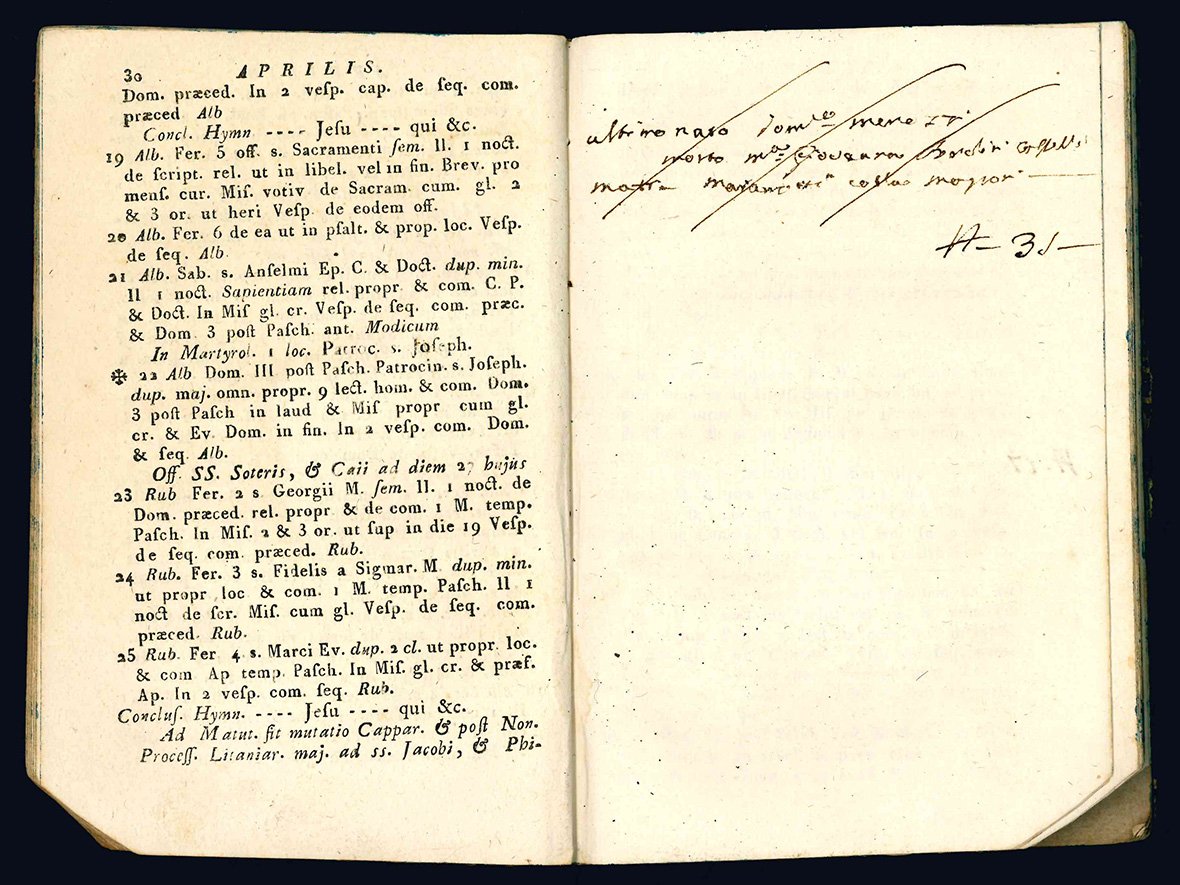 30 APRILIS.
Dom. præced. In 2 veſp. cap. de ſeq. com.
præced Alb
Concl. Hymn ---- Jeſu ---- qui &c.
19 Alb. Fer. 5 off. s. Sacramenti ſem. ll. 1 noct.
de ſcript. rel. ut in libel. vel in fin. Brev. pro
menſ. cur. Miſ. votiv de Sacram. cum. gl. 2
& 3 or. ut heri Veſp. de eodem off.
20 Alb. Fer. 6 de ea ut in pſalt. & prop. loc. Veſp.
de ſeq. Alb.
21 Alb. Sab. s. Anſelmi Ep. C. & Doct. dup. min.
ll 1 noct. Sapientiam rel. propr & com. C. P.
& Doct. In Miſ gl. cr. Veſp. de ſeq. com. præc.
& Dom. 3 poſt Paſch. ant. Modicum
In Martyrol. 1 loc. Patroc. s. Joſeph.
✠ 22 Alb Dom. III poſt Paſch. Patrocin. s. Joſeph.
dup. maj. omn. propr. 9 lect. hom. & com. Dom.
3 poſt Paſch in laud & Miſ propr cum gl.
cr. & Ev. Dom. in fin. In 2 veſp. com. Dom.
& ſeq. Alb.
Off. SS. Soteris, & Caii ad diem 27 hujus
23 Rub Fer. 2 s. Georgii M. ſem. ll. 1 noct. de
Dom. præced. rel. propr & de com. 1 M. temp.
Paſch. In Miſ. 2 & 3 or. ut ſup in die 19 Veſp.
de ſeq. com. præced. Rub.
24 Rub. Fer. 3 s. Fidelis a Sigmar. M. dup. min.
ut propr loc & com. 1 M. temp. Paſch. ll 1
noct de ſcr. Miſ. cum gl. Veſp. de ſeq. com.
præced. Rub.
25 Rub. Fer 4 s. Marci Ev. dup. 2 cl. ut propr. loc.
& com Ap temp. Paſch. In Miſ. gl. cr. & præf.
Ap. In 2 veſp. com. ſeq. Rub.
Concluſ. Hymn. ---- Jeſu ---- qui &c.
Ad Matut. fit mutatio Cappar. & poſt Non.
Proceſſ. Litaniar. maj. ad ss. Jacobi, & Phi-
ultimo
morto Giovanna